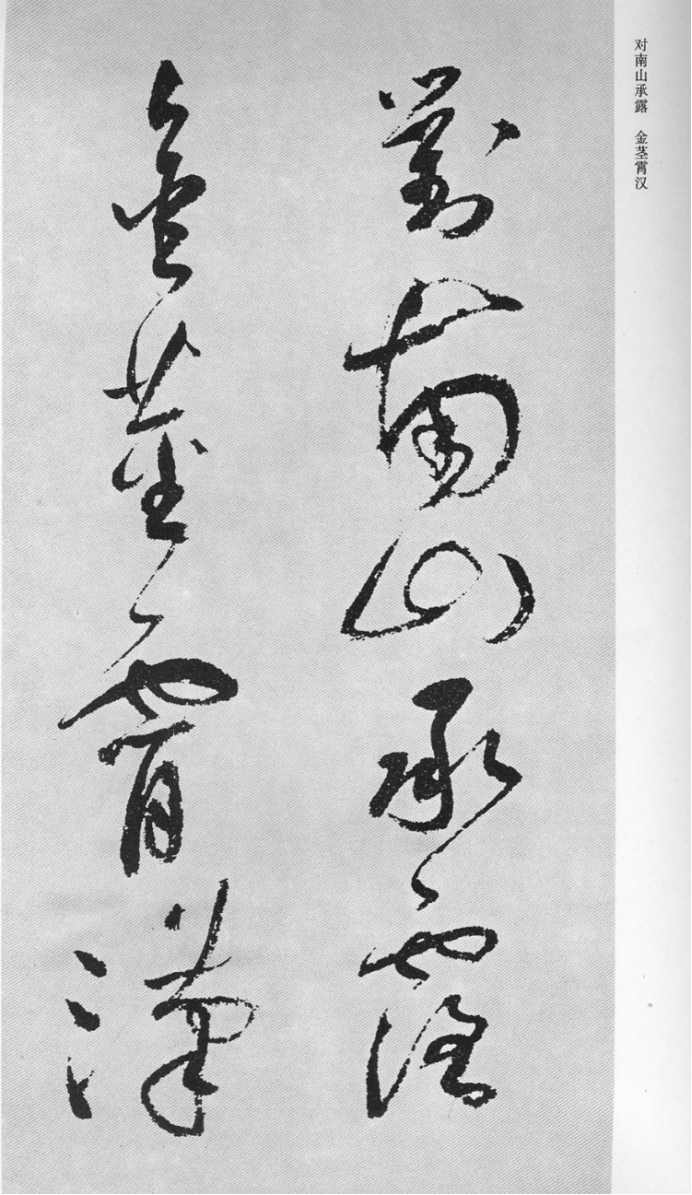 对南山承露 金茎霄汉
對南山承露
金莖霄漢